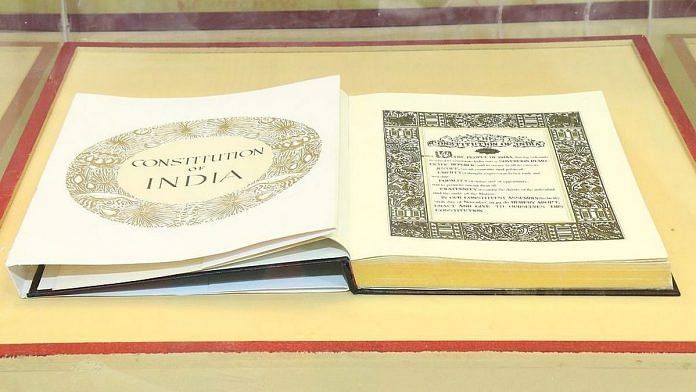 CONSTITUTION
OF
INDIA
THE
CONSTITUTION OF INDIA
WE, THE PEOPLE OF INDIA, having solemnly
resolved to constitute India into a SOVEREIGN DEMO-
CRATIC REPUBLIC and to secure to all its citizens:
JUSTICE, social, economic and political;
LIBERTY of thought, expression, belief, faith and
worship;
EQUALITY of status and of opportunity;
and to promote among them all
FRATERNITY assuring the dignity of the individual
and the unity of the Nation;
IN OUR CONSTITUENT ASSEMBLY this
day of November, do HEREBY ADOPT,
ENACT AND GIVE TO OURSELVES THIS
CONSTITUTION.